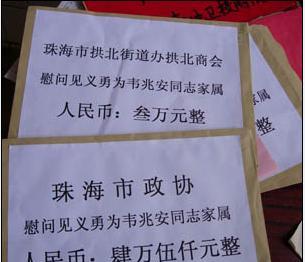 珠海市拱北街道办拱北商会
慰问见义勇为韦兆安同志家属
人民币：叁万元整
珠海市政协
慰问见义勇为韦兆安同志家属
人民币：肆万伍仟元整
属
整